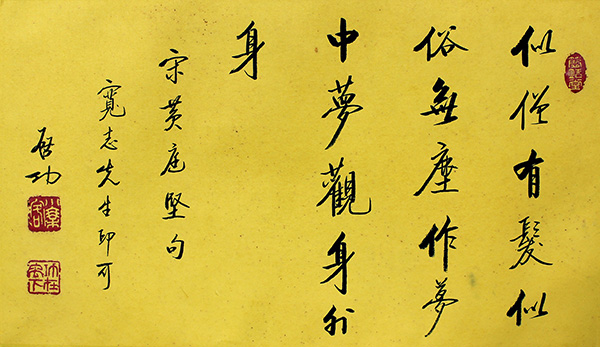 似僧有髮似
俗無塵作夢
中夢觀身外
身
宋黃庭堅句
寬志先生印可
啟功